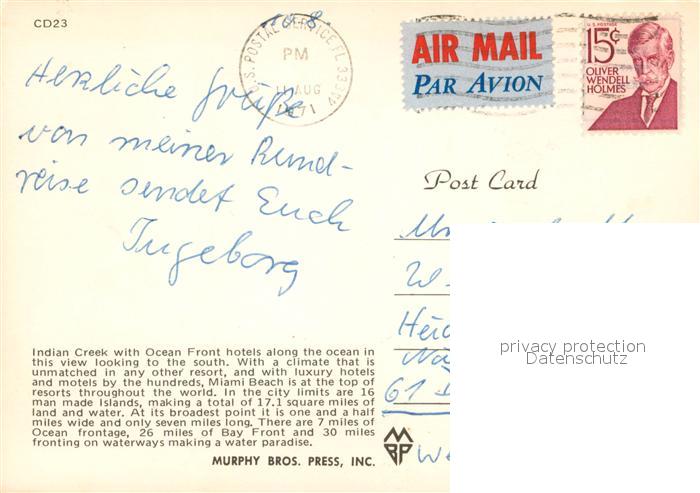 CD23
U.S. POSTAL SERVICE, FL
PM
11 AUG
1971
AIR MAIL
PAR AVION
U.S. POSTAGE
15¢
OLIVER
WENDELL
HOLMES
Herzliche Grüße
von meiner Rund-
reise sendet Euch
Ingeborg
Post Card
W.
61
privacy protection
Datenschutz
Indian Creek with Ocean Front hotels along the ocean in
this view looking to the south. With a climate that is
unmatched in any other resort, and with luxury hotels
and motels by the hundreds, Miami Beach is at the top of
resorts throughout the world. In the city limits are 16
man made Islands, making a total of 17.1 square miles of
land and water. At its broadest point it is one and a half
miles wide and only seven miles long. There are 7 miles of
Ocean frontage, 26 miles of Bay Front and 30 miles
fronting on waterways making a water paradise.
MURPHY BROS. PRESS, INC.
MBP